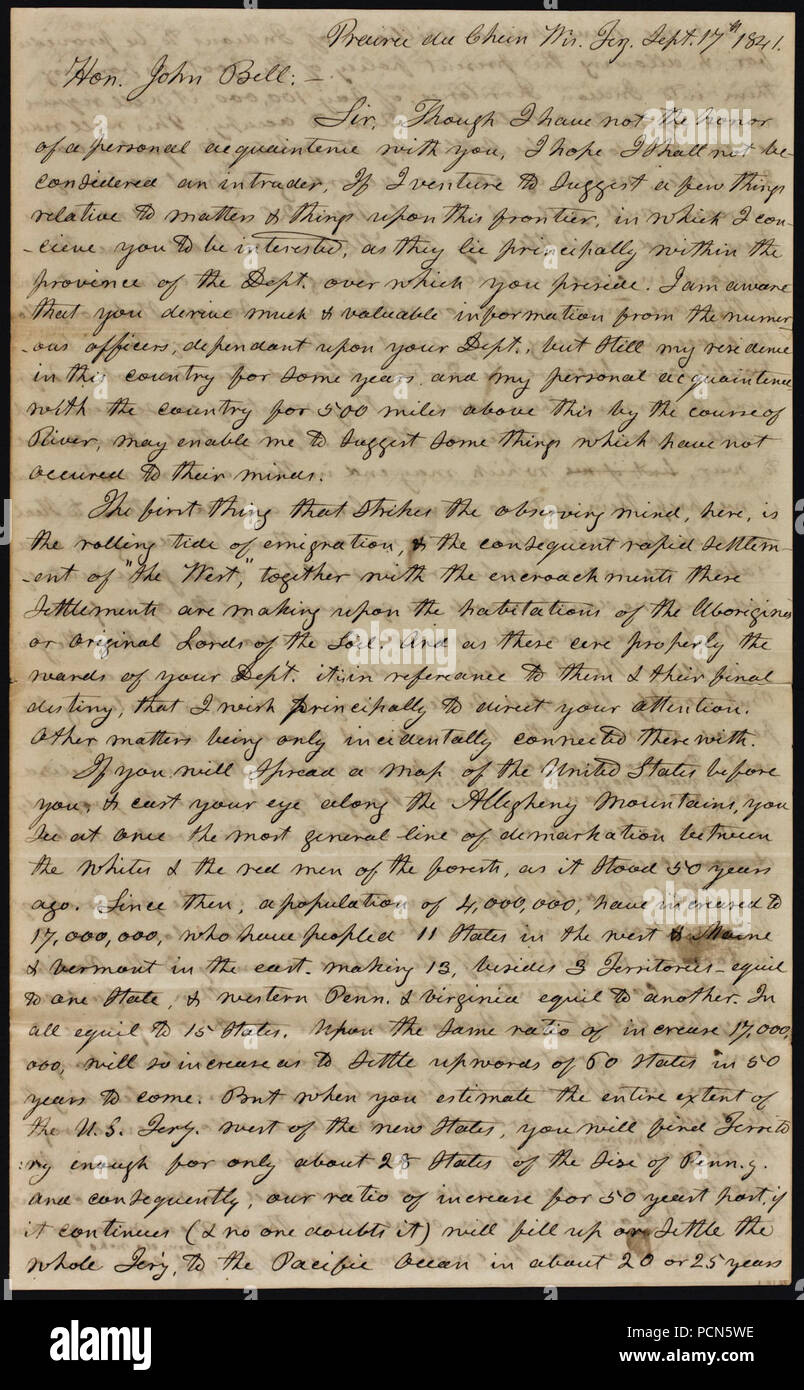 Prairie du Chein Wis. Terr. Sept. 17th 1841.
Hon. John Bell: –
Sir, Though I have not the honor
of a personal acquaintence with you, I hope I shall not be
considered an intruder, If I venture to suggest a few things
relative to matters & things upon this frontier, in which I con-
-cieve you to be interested, as they lie principally within the
province of the Dept. over which you preside. I am aware
that you derive much & valuable information from the numer-
-ous officers, dependant upon your Dept., but still my residence
in this country for some years, and my personal acquaintence
with the country for 500 miles above this by the course of
River, may enable me to suggest some things which have not
occured to their minds.
The first thing that strikes the observing mind, here, is
the rolling tide of emigration, & the consequent rapid settlem-
-ent of "the West," together with the encroachments these
settlements are making upon the habitations of the Aborigines
or original Lords of the Soil. And as these are properly the
wards of your Dept. it is in refereance to them & their final
destiny, that I wish principally to direct your attention.
Other matters being only incidentally connected therewith.
If you will spread a map of the United States before
you, & cast your eye along the Allegheny Mountains, you
see at once the most general line of demarkation between
the whites & the red men of the forests, as it stood 50 years
ago. Since then, a population of 4,000,000, have increased to
17,000,000, who have peopled 11 States in the west & Maine
& Vermont in the east. making 13, besides 3 Territories equil
to one State, & western Penn. & Virginia equil to another. In
all equil to 15 States. Upon the same ratio of increase 17,000,
000, will so increase as to settle upwords of 60 States in 50
years to come. But when you estimate the entire extent of
the U.S. Terry. west of the new States, you will find Territo
ry enough for only about 28 States of the size of Penn.y.
and consequently, our ratio of increase for 50 years past, if
it continues (& no one doubts it) will fill up or settle the
whole Ter'y, to the Pacific Ocean in about 20 or 25 years
alamy
Image ID: PCN5WE
www.alamy.com